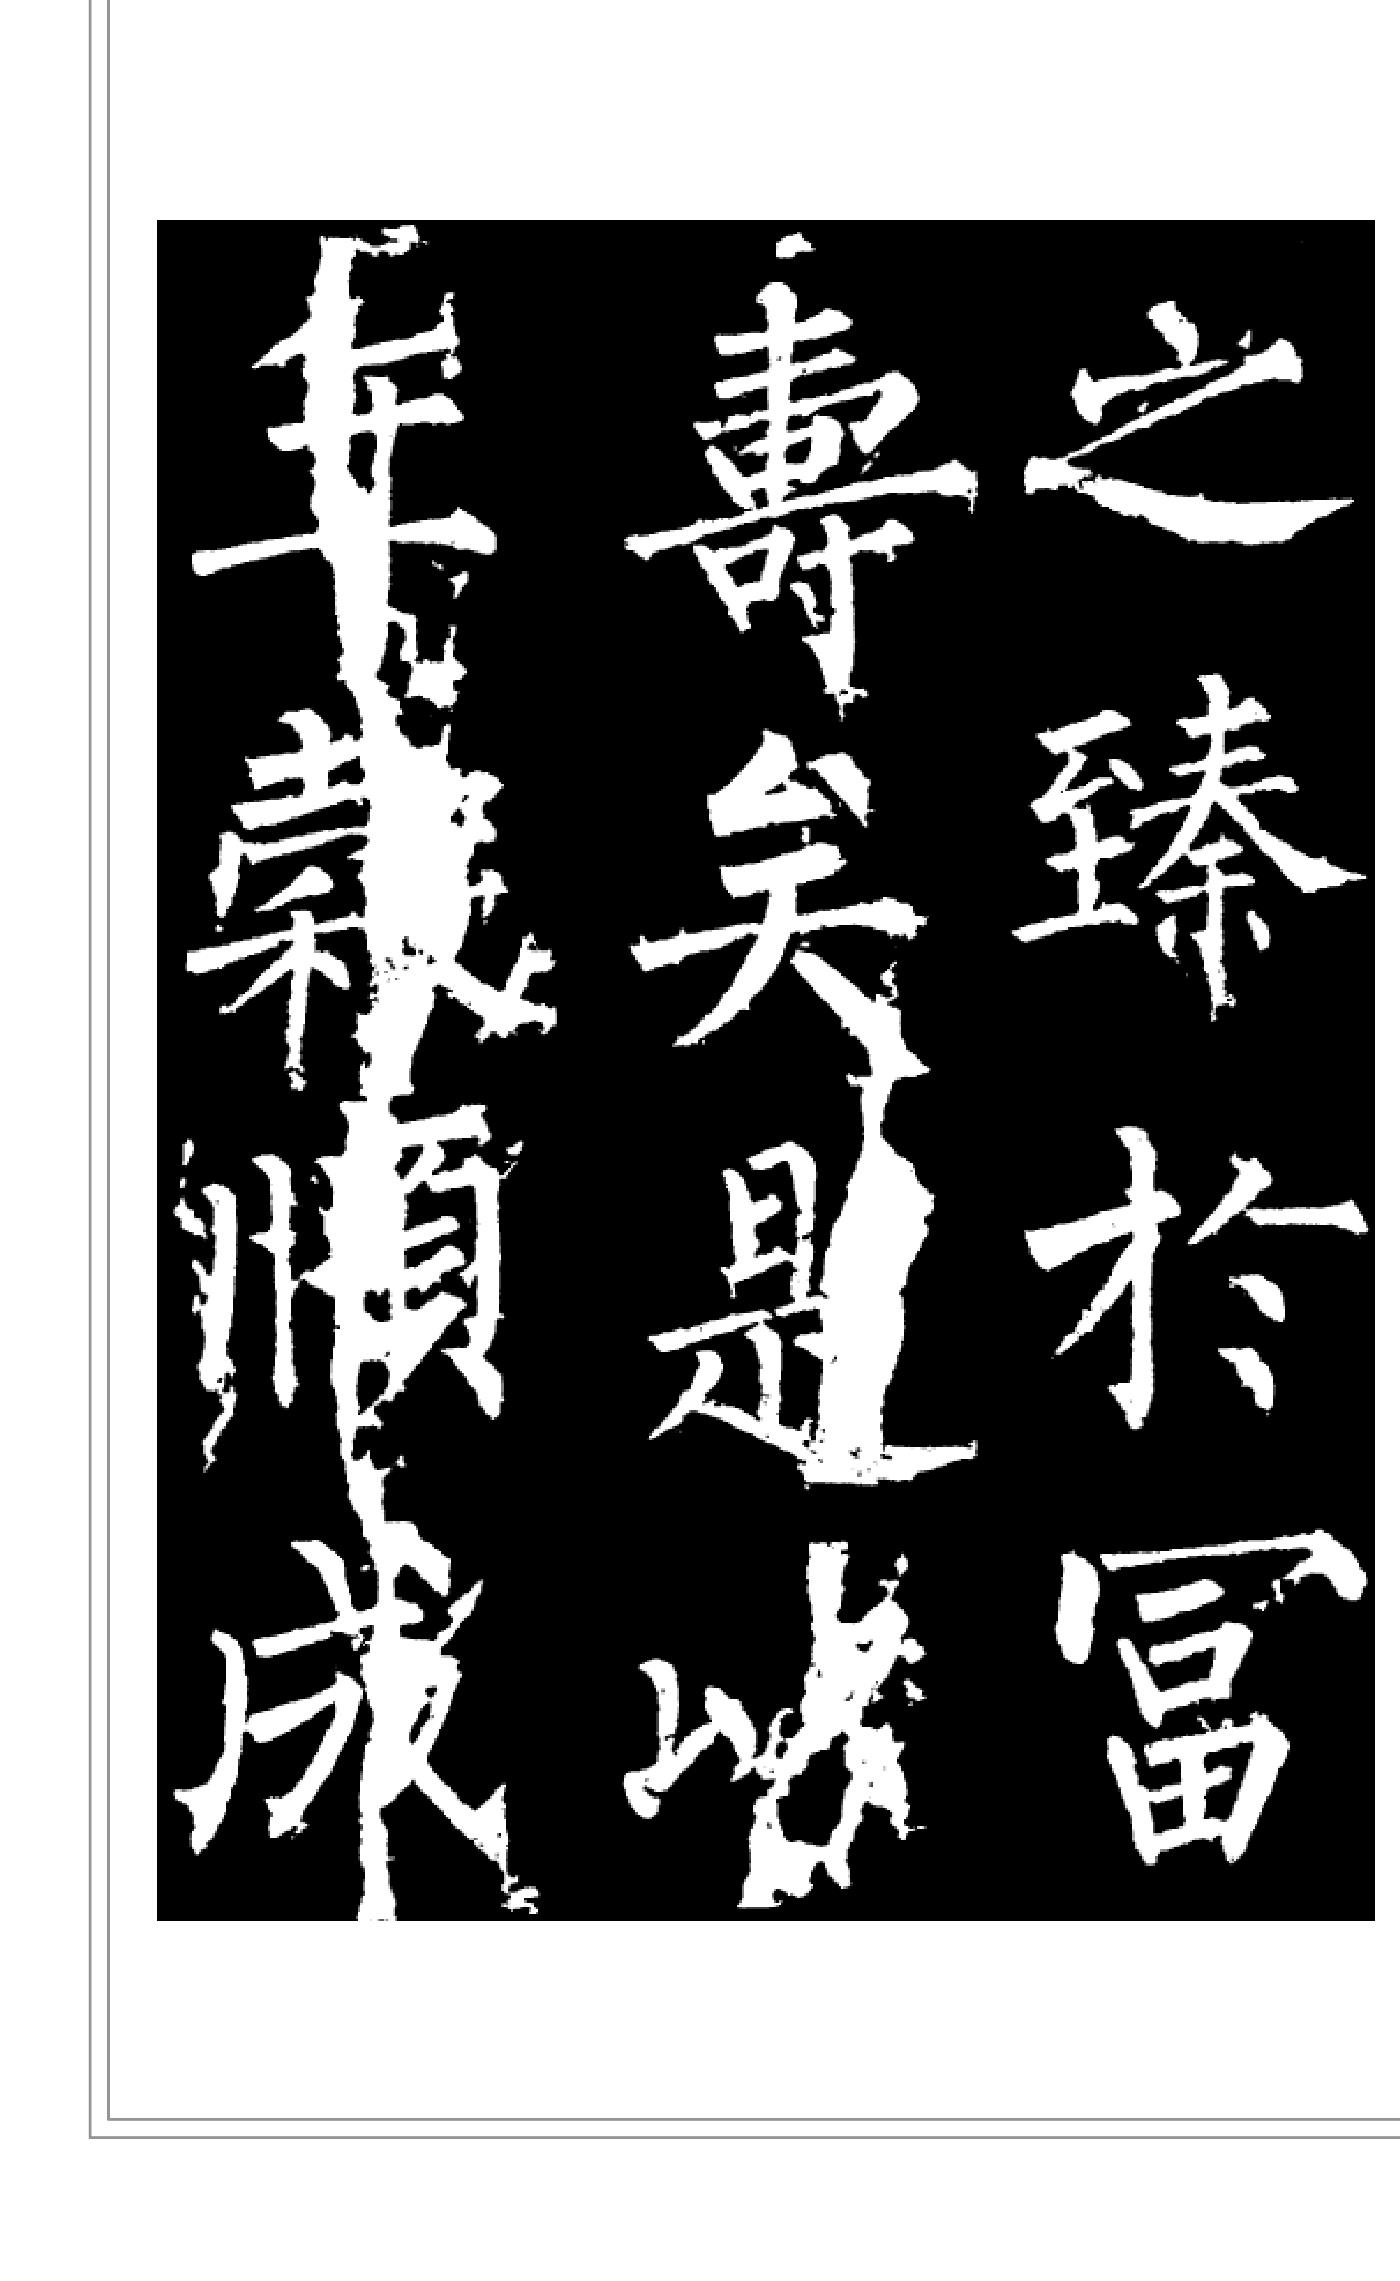 之臻於冨
壽矣是以
年穀順成